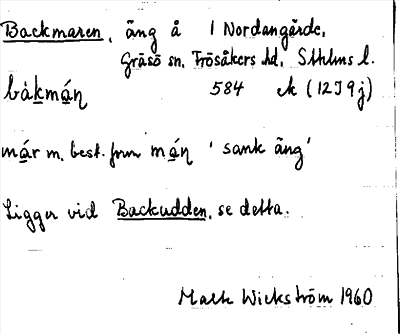 Backmaren, äng å 1 Nordangårde,
Gräsö sn, Frösåkers hd, Sthlms l.
bàkmán 584 ek (12J 9j)
már m. best. form mán 'sank äng'
Ligger vid Backudden, se detta.
Malte Wickström 1960